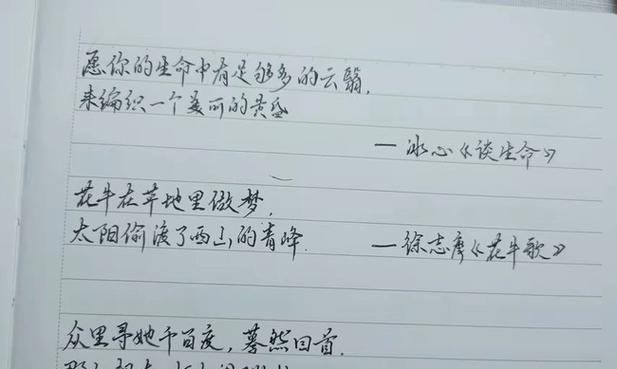 愿你的生命中有足够多的云翳,
来编织一个美丽的黄昏
— 冰心《谈生命》
花牛在草地里做梦,
太阳偷渡了西山的青峰.
— 徐志摩《花牛歌》
众里寻她千百度, 蓦然回首,